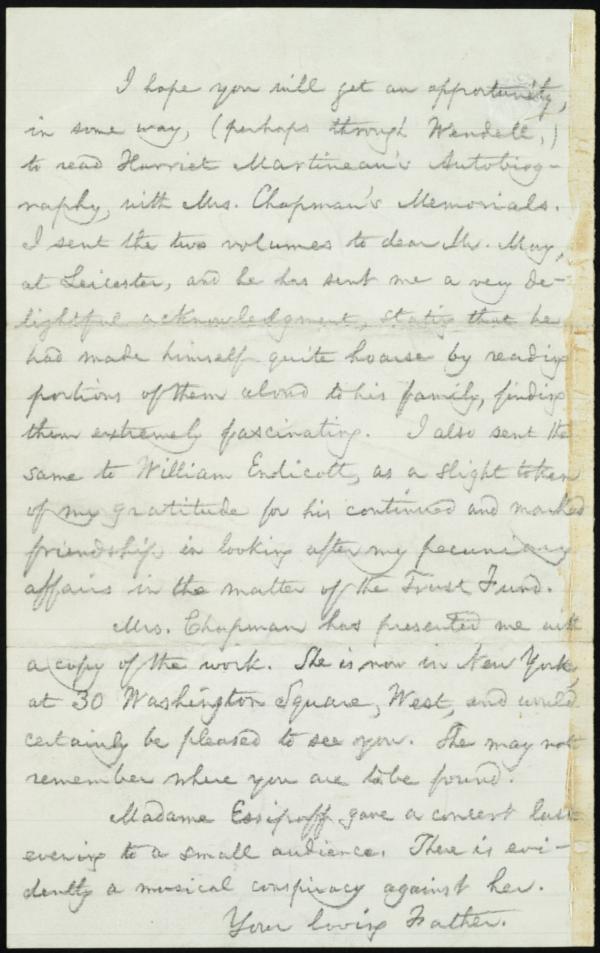 I hope you will get an opportunity,
in some way, (perhaps through Wendell,)
to read Harriet Martineau's Autobiog-
raphy, with Mrs. Chapman's Memorials.
I sent the two volumes to dear Mr. May,
at Leicester, and he has sent me a very de-
lightful acknowledgment, stating that he
had made himself quite hoarse by reading
portions of them aloud to his family, finding
them extremely fascinating. I also sent the
same to William Endicott, as a slight token
of my gratitude for his continued and marked
friendship in looking after my pecuniary
affairs in the matter of the Trust Fund.
Mrs. Chapman has presented me with
a copy of the work. She is now in New York,
at 30 Washington Square, West, and would
certainly be pleased to see you. She may not
remember where you are to be found.
Madame Essipoff gave a concert last
evening to a small audience. There is evi-
dently a musical conspiracy against her.
Your loving Father.